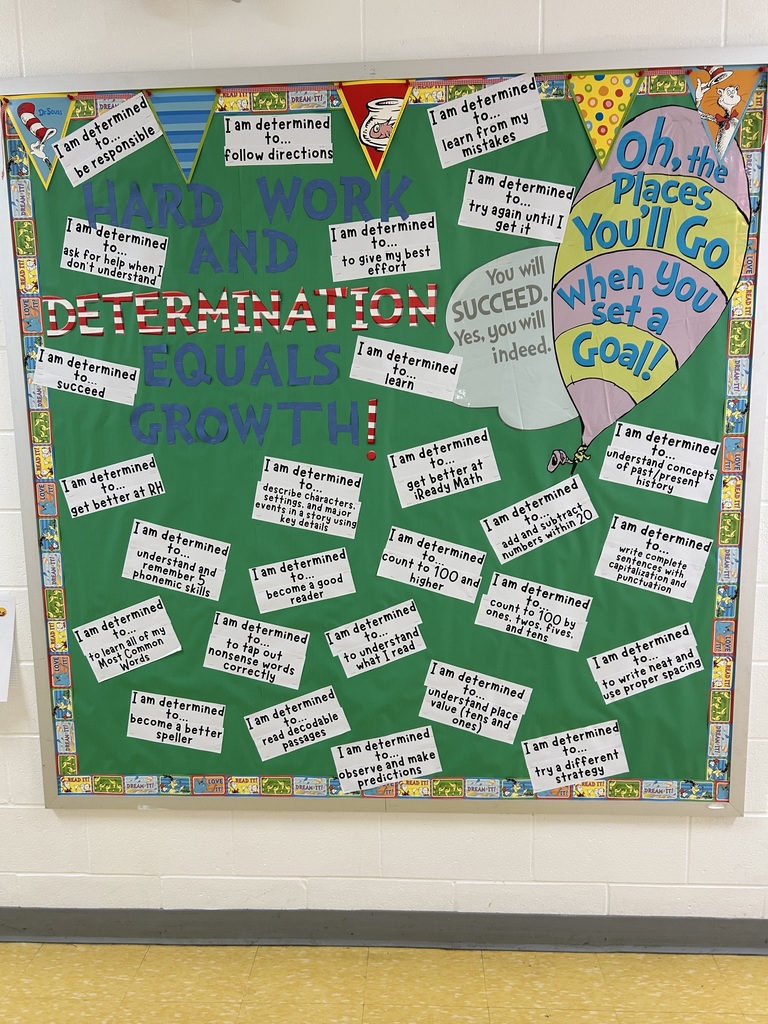 Dr. Seuss
I am determined
to...
be responsible
I am determined
to...
follow directions
I am determined
to...
learn from my
mistakes
I am determined
to...
try again until I
get it
Oh, the
Places
You'll Go
When you
set a
Goal!
You will
SUCCEED.
Yes, you will
indeed.
HARD WORK
AND
DETERMINATION
EQUALS
GROWTH!
I am determined
to...
ask for help when I
don't understand
I am determined
to...
to give my best
effort
I am determined
to...
succeed
I am determined
to...
learn
I am determined
to...
get better at RH
I am determined
to...
describe characters,
settings, and major
events in a story using
key details
I am determined
to...
get better at
iReady Math
I am determined
to...
add and subtract
numbers within 20
I am determined
to...
understand concepts
of past/present
history
I am determined
to...
understand and
remember 5
phonemic skills
I am determined
to...
become a good
reader
I am determined
to...
count to 100 and
higher
I am determined
to...
count to 100 by
ones, twos, fives,
and tens
I am determined
to...
write complete
sentences with
capitalization and
punctuation
I am determined
to...
to learn all of my
Most Common
Words
I am determined
to...
to tap out
nonsense words
correctly
I am determined
to...
to understand
what I read
I am determined
to...
understand place
value (tens and
ones)
I am determined
to...
to write neat and
use proper spacing
I am determined
to...
become a better
speller
I am determined
to...
read decodable
passages
I am determined
to...
observe and make
predictions
I am determined
to...
try a different
strategy
READ IT!
DREAM IT!
LOVE